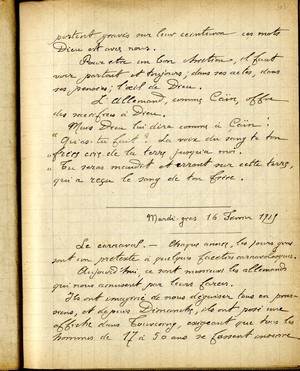 portent gravés sur leur ceinturon ces mots
Dieu est avec nous.
Pour être un bon chrétien, il faut
voir, partout et toujours; dans ses actes, dans
ses pensées; l'œil de Dieu.
L'Allemand, comme Caïn, offre
des sacrifices à Dieu.
Mais Dieu lui dira comme à Caïn:
"Qu'as-tu fait? La voix du sang de ton
frère crie de la terre jusqu'à moi.
"Tu seras maudit et errant sur cette terre,
qui a reçu le sang de ton frère.
Mardi-gras 16 Février 1915
Le carnaval. — Chaque année, les jours gras
sont un prétexte à quelques facéties carnavalesques.
Aujourd'hui, ce sont messieurs les allemands
qui nous amusent par leurs farces.
Ils ont imaginé de nous déguiser tous en
et depuis Dimanche, ils ont posé une
affiche dans Tourcoing, exigeant que tous les
hommes de 17 à 50 ans se fassent inscrire